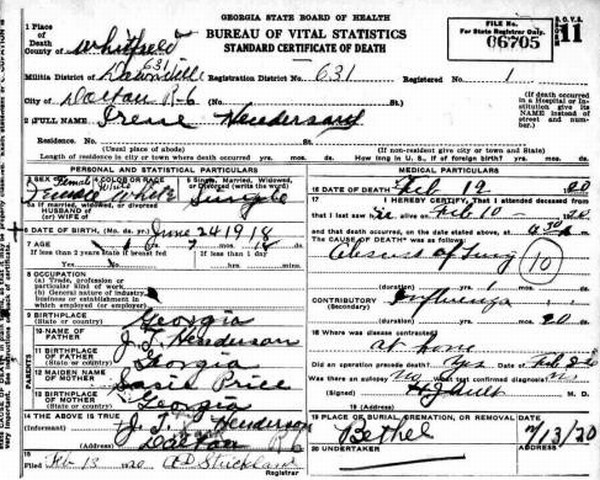 GEORGIA STATE BOARD OF HEALTH
BUREAU OF VITAL STATISTICS
STANDARD CERTIFICATE OF DEATH
FILE No.
For State Registrar Only.
06705
11
1 Place of Death
County of Whitfield
631
Militia District of Registration District No. 631 Registered No. 1
City of Dalton R-6 (No. St.)
(If death occurred in a Hospital or Institution give its NAME instead of street and number.)
2 FULL NAME Irene Henderson
Residence. No. St.
(Usual place of abode) (If non-resident give city or town and State)
Length of residence in city or town where death occurred yrs. mos. ds. How long in U. S., if of foreign birth? yrs. mos. ds.
PERSONAL AND STATISTICAL PARTICULARS
3 SEX 4 COLOR OR RACE 5 Single, Married, Widowed, or Divorced (write the word)
Female White
Female White Single
5a If married, widowed, or divorced
HUSBAND of
(or) WIFE of
6 DATE OF BIRTH, (Mo. ds. yr.) June 24 1918
7 AGE 1 yrs. 7 mos. 18 ds.
If less than 2 years State if breast fed If less than 1 day
Yes No hrs. min.
8 OCCUPATION
(a) Trade, profession or particular kind of work
(b) General nature of industry, business or establishment in which employed (or employer)
9 BIRTHPLACE
(State or country) Georgia
PARENTS
10 NAME OF FATHER J. T. Henderson
11 BIRTHPLACE OF FATHER
(State or country) Georgia
12 MAIDEN NAME OF MOTHER Price
13 BIRTHPLACE OF MOTHER
(State or country) Georgia
14 THE ABOVE IS TRUE
(Informant) J. T. Henderson
(Address) Dalton R 6
15
Filed Feb 13 1920 Strickland
Registrar
MEDICAL PARTICULARS
16 DATE OF DEATH Feb 12 20
17 I HEREBY CERTIFY, That I attended deceased from
that I last saw h alive on Feb 10 20
and that death occurred, on the date stated above, at 4 30 A
The CAUSE OF DEATH* was as follows:
Abscess of lung
10
(duration) yrs. 1 mos. ds.
CONTRIBUTORY Influenza
(Secondary)
(duration) yrs. mos. 20 ds.
18 Where was disease contracted
at home
Did an operation precede death? Yes Date of
Was there an autopsy No What test confirmed diagnosis
(Signed) M. D.
19 (Address)
19 PLACE OF BURIAL, CREMATION, OR REMOVAL DATE
Bethel 2/13/20
20 UNDERTAKER ADDRESS